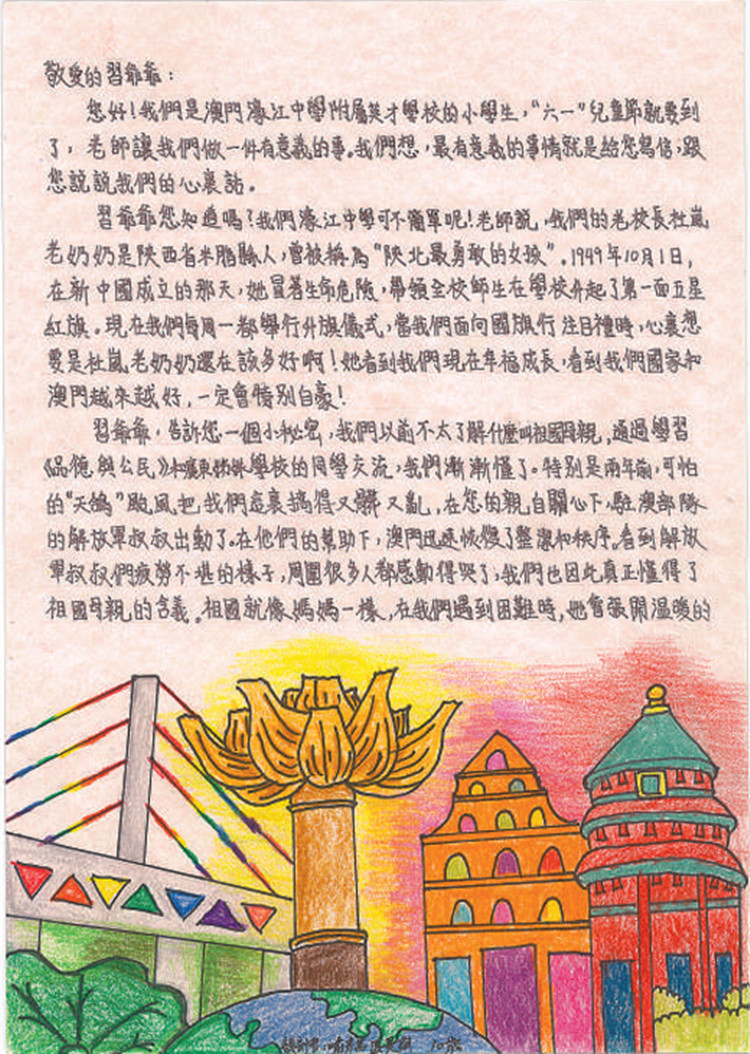 敬愛的習爺爺：
您好！我們是澳門濠江中學附屬英才學校的小學生，“六一”兒童節就要到
了，老師讓我們做一件有意義的事。我們想，最有意義的事情就是給您寫信，跟
您說說我們的心裏話。
習爺爺您知道嗎？我們濠江中學可不簡單呢！老師說，我們的老校長杜嵐
老奶奶是陝西省米脂縣人，曾被稱為“陝北最勇敢的女孩”。1949年10月1日，
在新中國成立的那天，她冒着生命危險，帶領全校師生在學校升起了第一面五星
紅旗。現在我們每周一都舉行升旗儀式，當我們面向國旗行注目禮時，心裏想
要是杜嵐老奶奶還在該多好啊！她看到我們現在幸福成長，看到我們國家和
澳門越來越好，一定會特別自豪！
習爺爺，告訴您一個小秘密，我們以前不太了解什麼叫祖國母親，通過學習
《品德與公民》和廣東姊妹學校的同學交流，我們漸漸懂了。特別是兩年前，可怕
的“天鴿”颱風把我們這裏搞得又髒又亂，在您的親自關心下，駐澳部隊
的解放軍叔叔出動了。在他們的幫助下，澳門迅速恢復了整潔和秩序。看到解放
軍叔叔們疲勞不堪的樣子，周圍很多人都感動得哭了；我們也因此真正懂得了
祖國母親的含義。祖國就像媽媽一樣，在我們遇到困難時，她會張開溫暖的
10歲